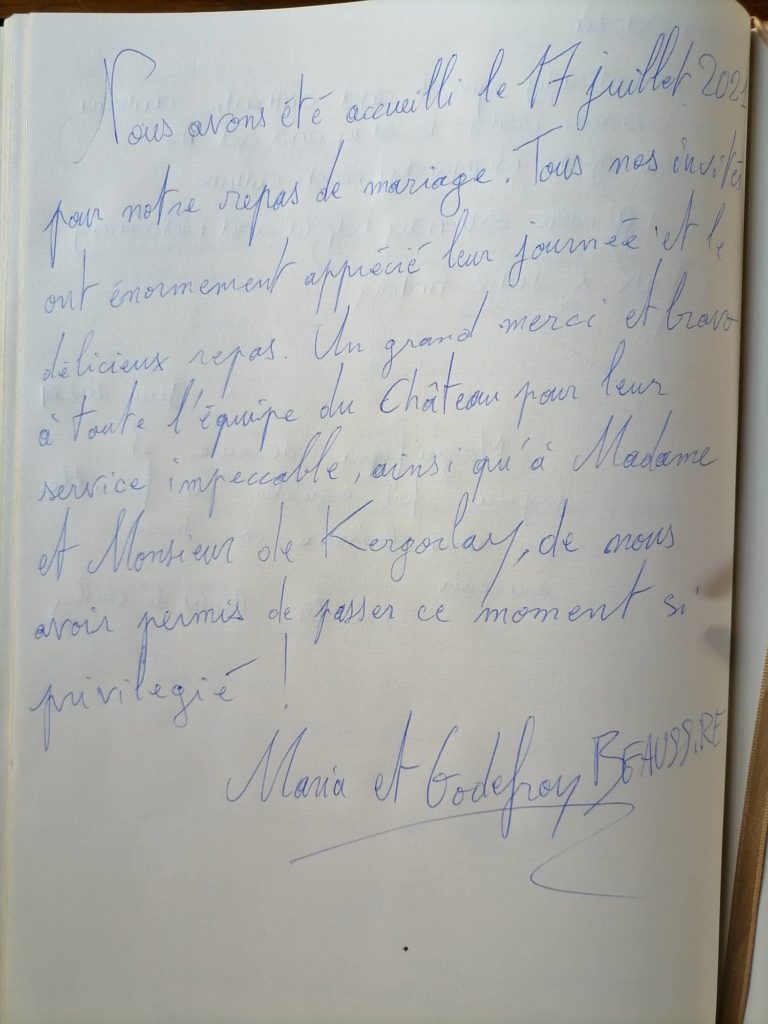 Nous avons été accueilli le 17 juillet 2021
pour notre repas de mariage. Tous nos invités
ont énormement apprécié leur journée et le
délicieux repas. Un grand merci et bravo
à toute l'équipe du Château pour leur
service impeccable, ainsi qu'à Madame
et Monsieur de Kergorlay, de nous
avoir permis de passer ce moment si
privilegié !
Maria et Godefroy BEAUSSIRE